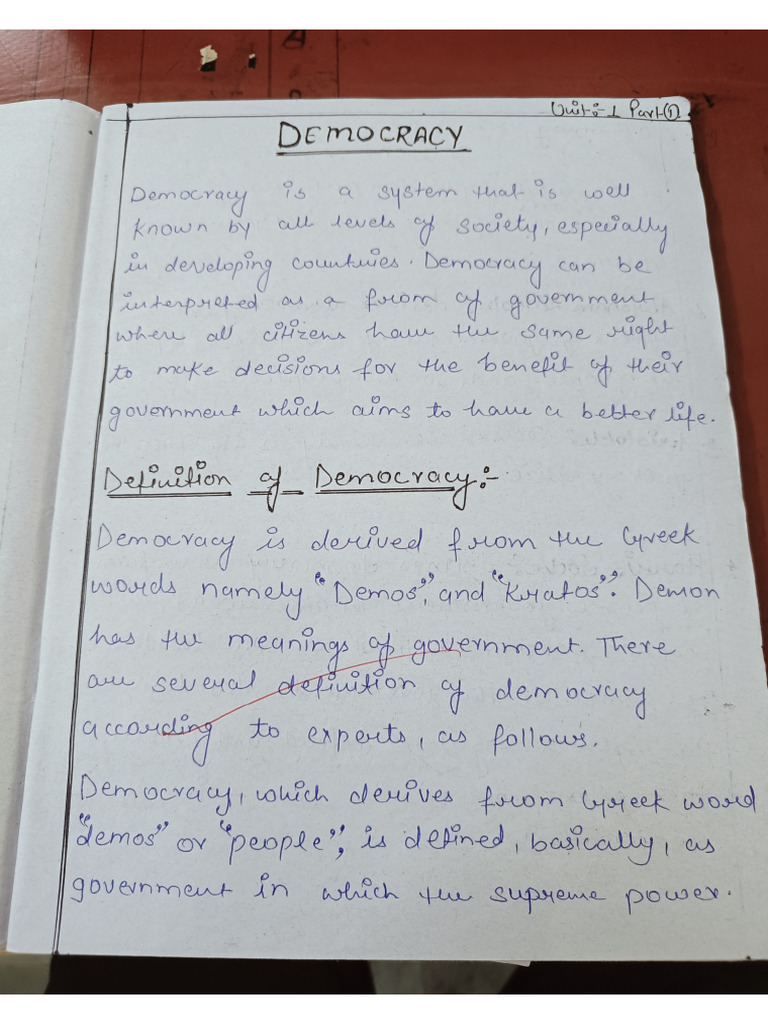 Unit:-1 Part(1)
DEMOCRACY
Democracy is a system that is well
known by all levels of society, especially
in developing countries. Democracy can be
interpreted as a from of government
where all citizens have the same right
to make decisions for the benefit of their
government which aims to have a better life.
Definition of Democracy:-
Democracy is derived from the Greek
words namely "Demos", and "Kratos". Demon
has the meanings of government. There
are several definition of democracy
according to experts, as follows.
Democracy, which derives from Greek word
"demos" or "people", is defined, basically, as
government in which the supreme power.